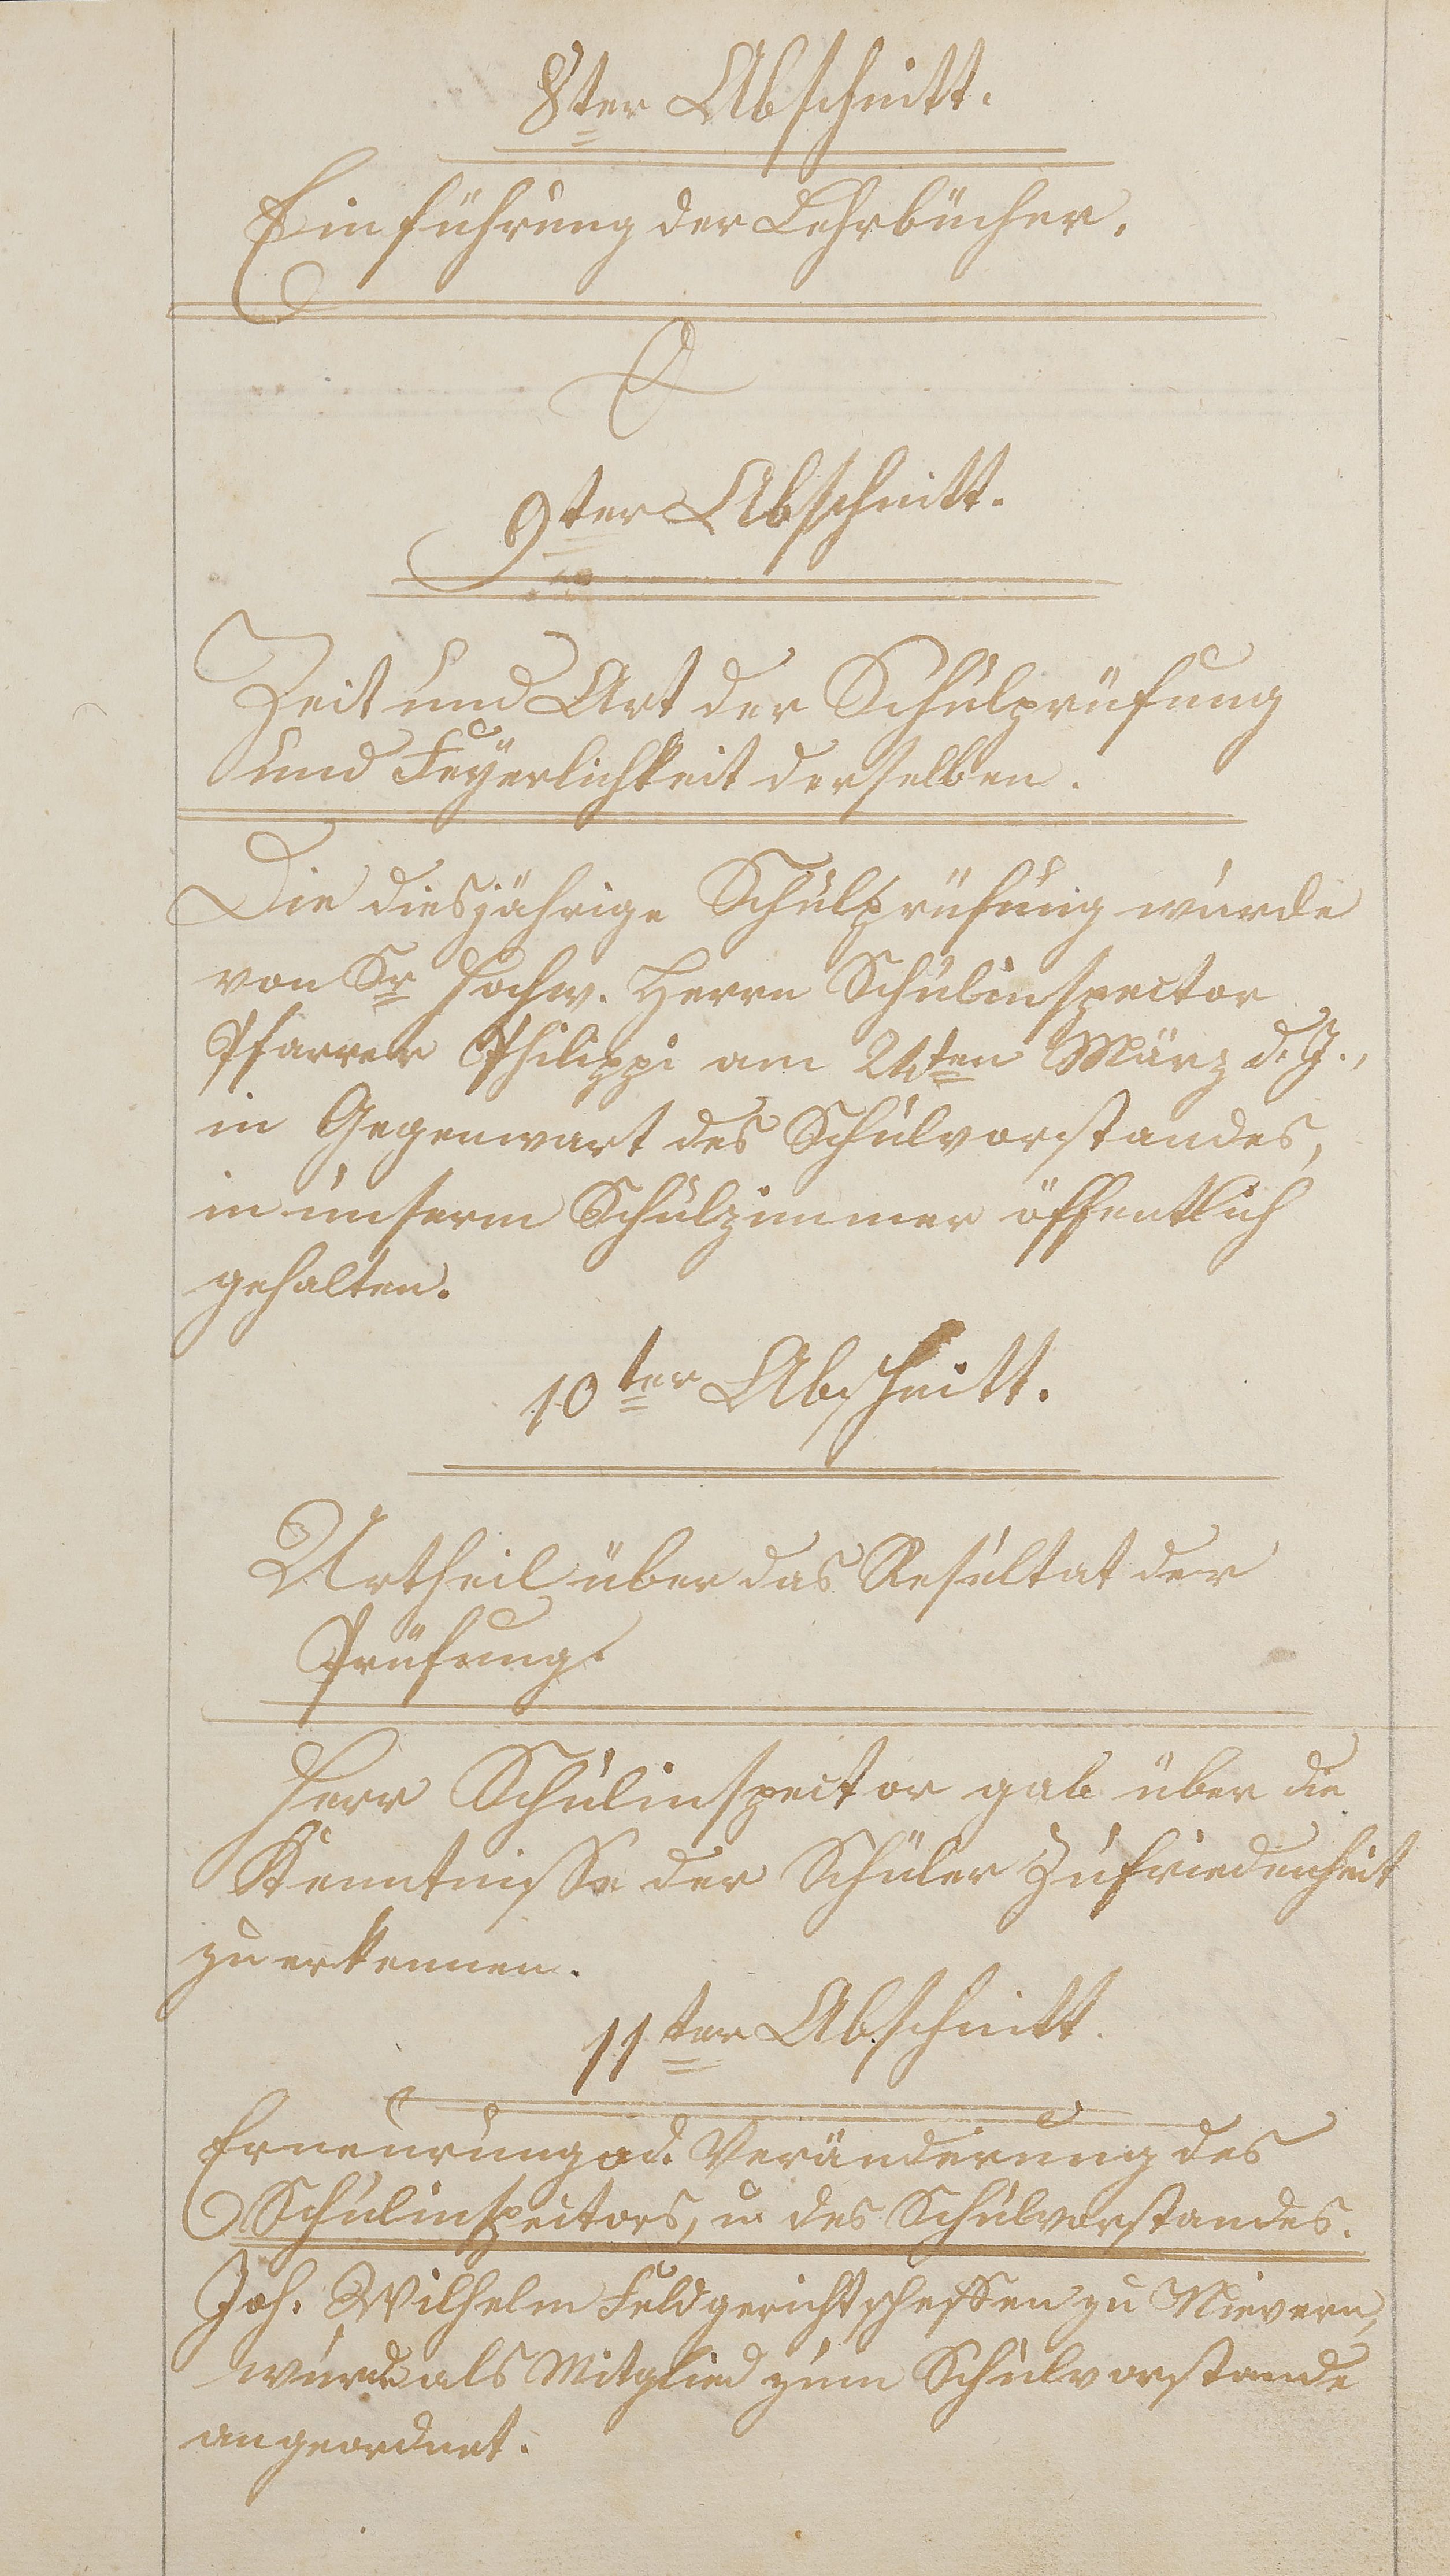 8ter Abschnitt.
Einführung der Lehrbücher.
9ter Abschnitt.
Zeit und Art der Schulprüfung
und Feyerlichkeit derselben.
Die diesjährige Schulprüfung wurde
von Sr Hochw. Herrn Schulinspector
Pfarrer Philippi am 24ten März d. J.,
in Gegenwart des Schulvorstandes,
in unserm Schulzimmer öffentlich
gehalten.
10ter Abschnitt.
Urtheil über das Resultat der
Prüfung.
Herr Schulinspector gab über die
Kenntnisse der Schüler Zufriedenheit
zu erkennen.
11ter Abschnitt.
Erneurung od. Veränderung des
Schulinspectors, u. des Schulvorstandes.
Joh. Wilhelm Feldgerichtscheffen zu Nievern,
wurde als Mitglied zum Schulvorstande
angeordnet.